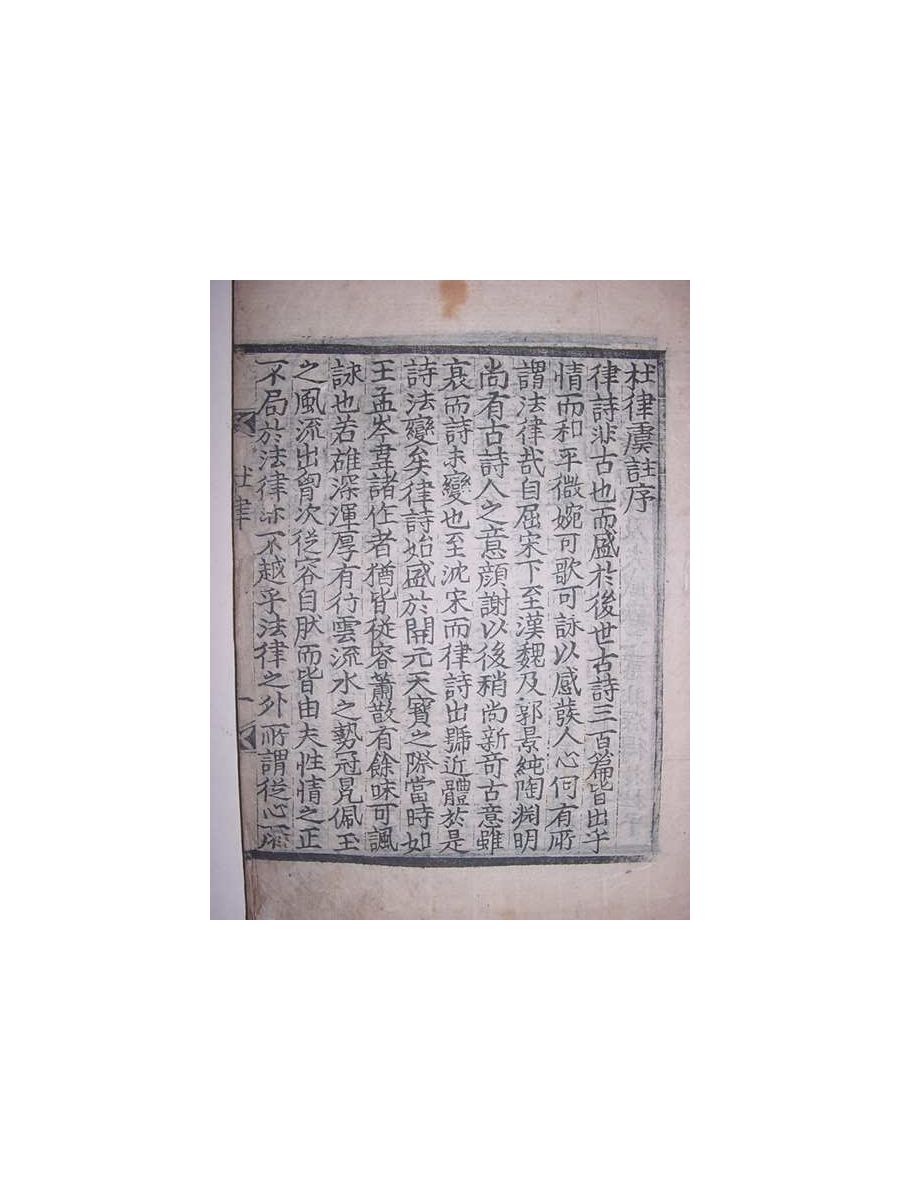 杜律虞註序
律詩非古也而盛於後世古詩三百篇皆出乎
情而和平微婉可歌可詠以感發人心何有所
謂法律哉自屈宋下至漢魏及郭景純陶淵明
尚有古詩人之意顔謝以後稍尚新奇古意雖
衰而詩未變也至沈宋而律詩出號近體於是
詩法變矣律詩始盛於開元天寶之際當時如
王孟岑韋諸作者猶皆從容蕭散有餘味可諷
詠也若雄深渾厚有行雲流水之勢冠冕佩玉
之風流出胷次從容自肰而皆由夫性情之正
不局於法律亦不越乎法律之外所謂從心所
杜律 一